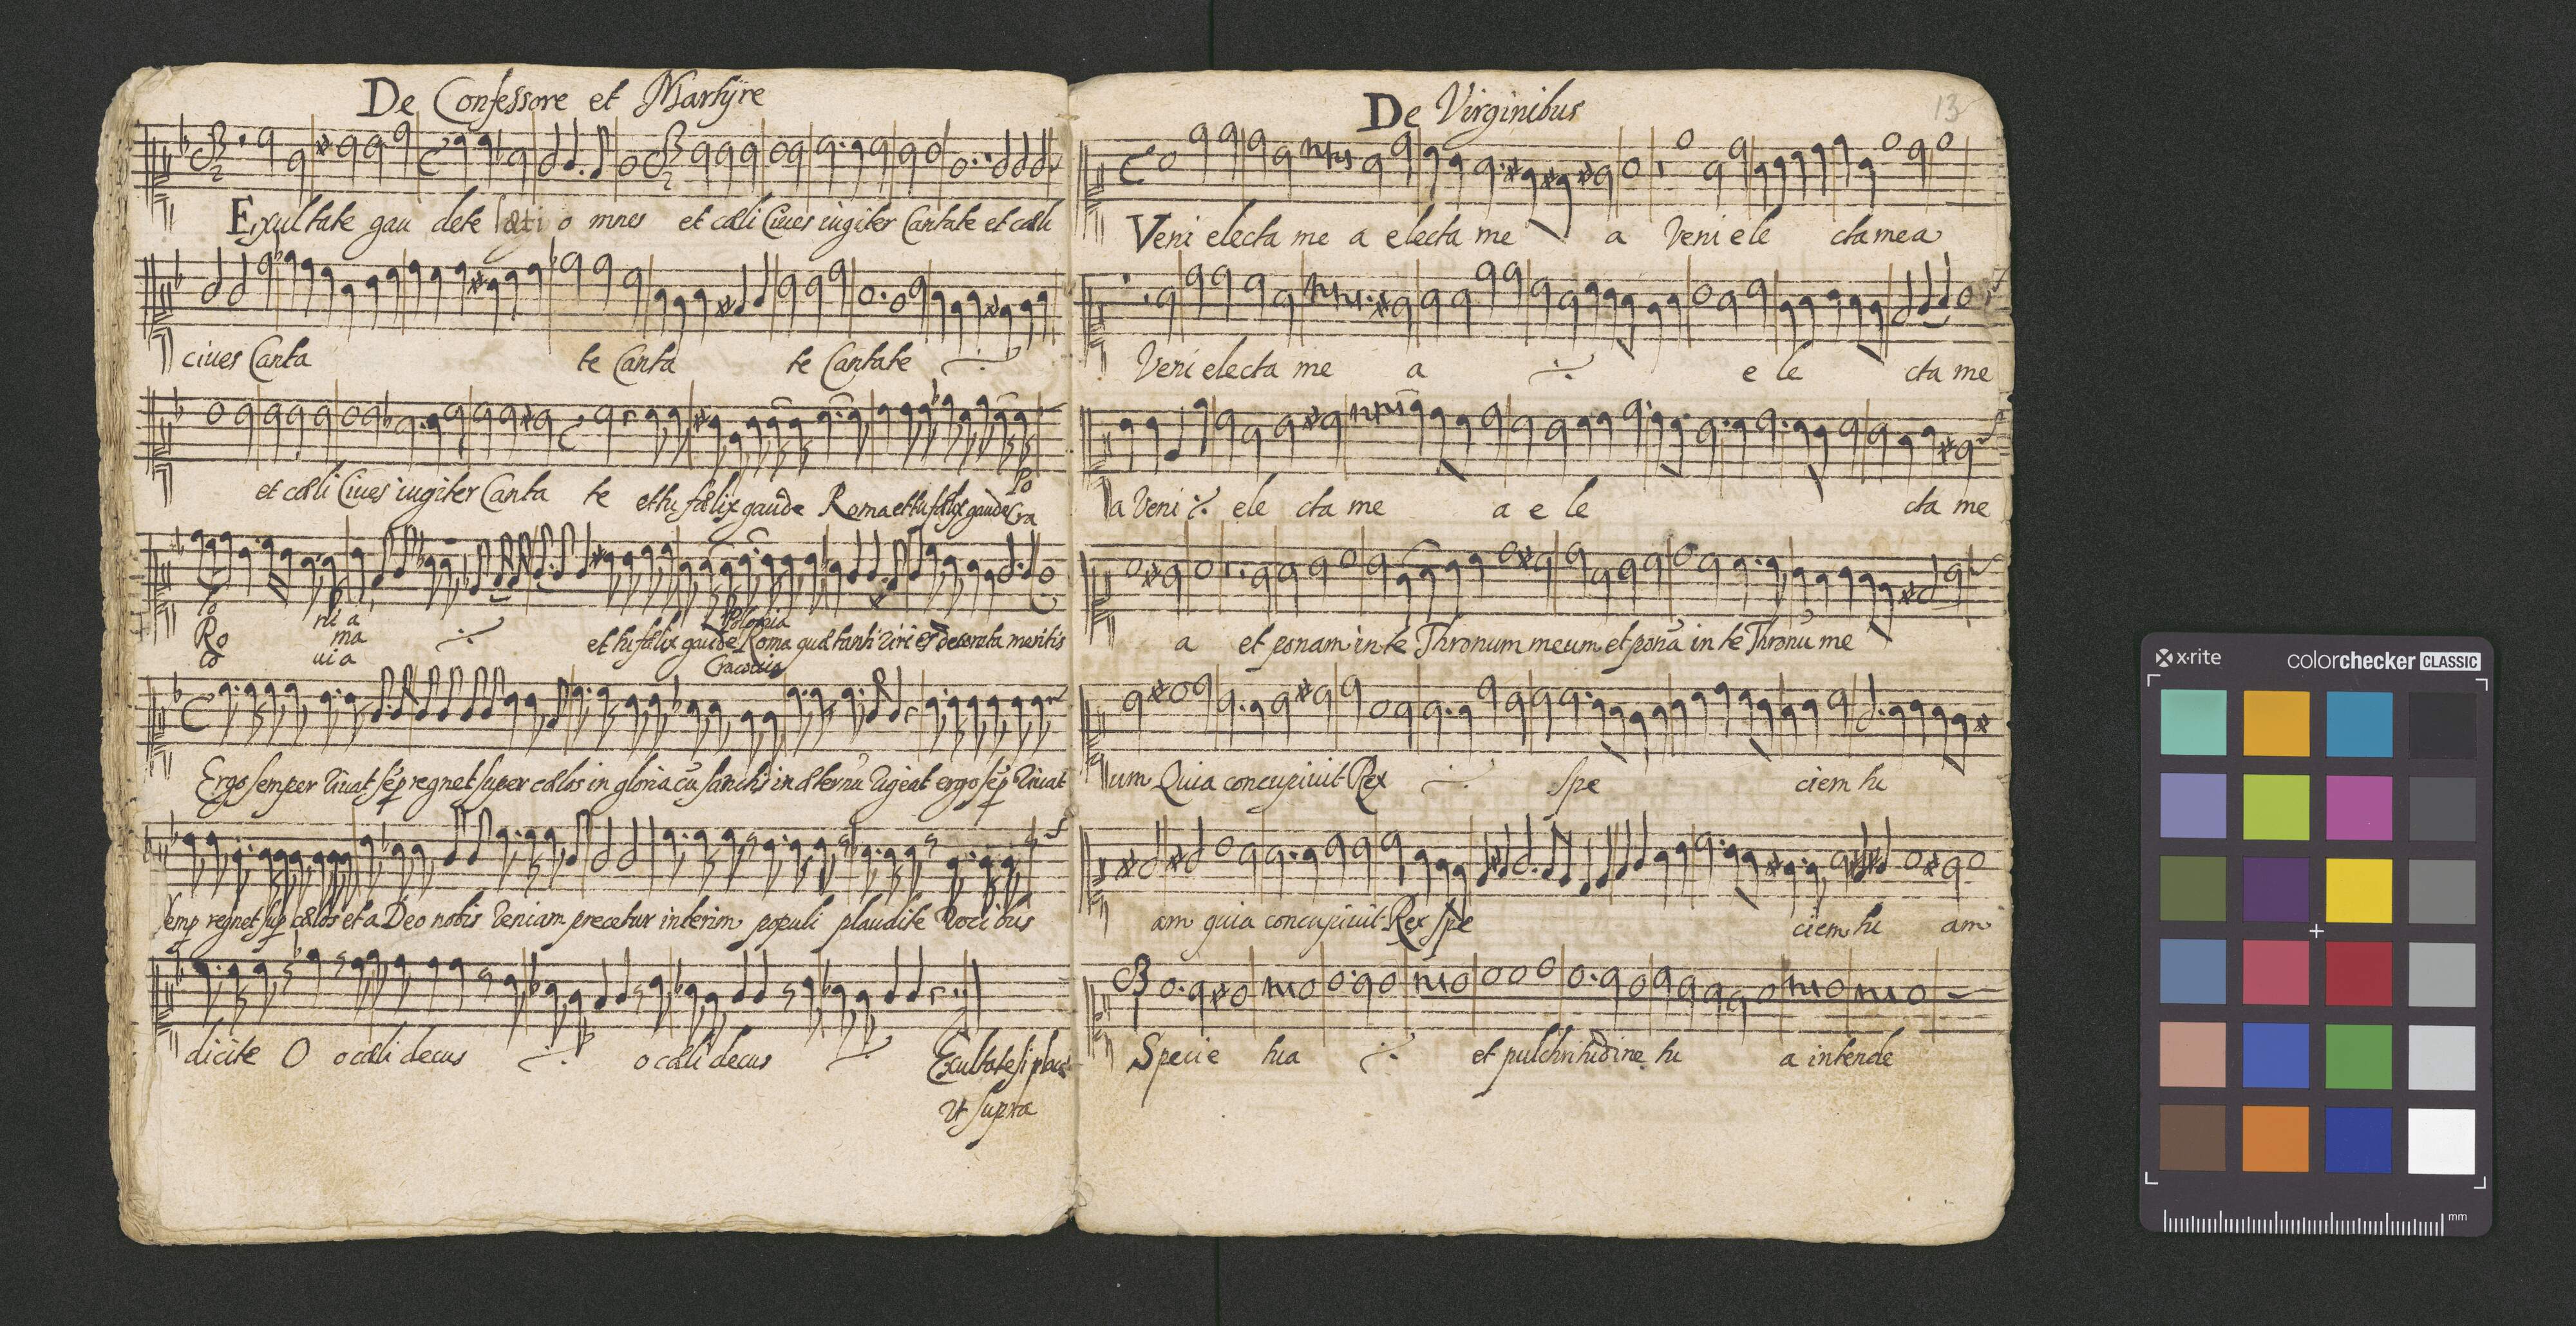 De Confessore et Martÿre
Exultate gau dete læti o mnes et cæli Ciues iugiter Cantate et cæli
ciues Canta te Canta te Cantate
et cæli Ciues iugiter Canta te et tu fœlix gaude Roma et tu fœlix gaude
Po
Cra
lo ni a Polonia
Ro ma et tu fœlix gaude Roma quæ tanti viri es decorata meritis
co ui a Cracouia
Ergo semper viuat sēp regnet super cælos in gloria cū sanctis in æternū vigeat ergo sēp viuat
semp regnet sup cælos et a Deo nobis veniam precetur interim populi plaudite voci bus
dicite O o cæli decus o cæli decus Exultate si placet
vt supra
De Virginibus
13
Veni electa me a electa me a Veni ele cta mea
Veni electa me a e le cta me
a Veni ele cta me a e le cta me
a et ponam in te Thronum meum et ponā in te Thronū me
um Quia concupiuit Rex spe ciem tu
am quia concupiuit Rex spe ciem tu am
Specie tua et pulchritudine tu a intende
x·rite colorchecker CLASSIC
mm